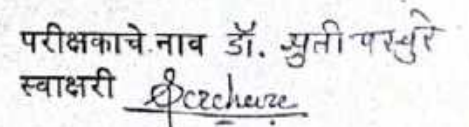 परीक्षकाचे नाव डॉ. श्रुती परचुरे
स्वाक्षरी